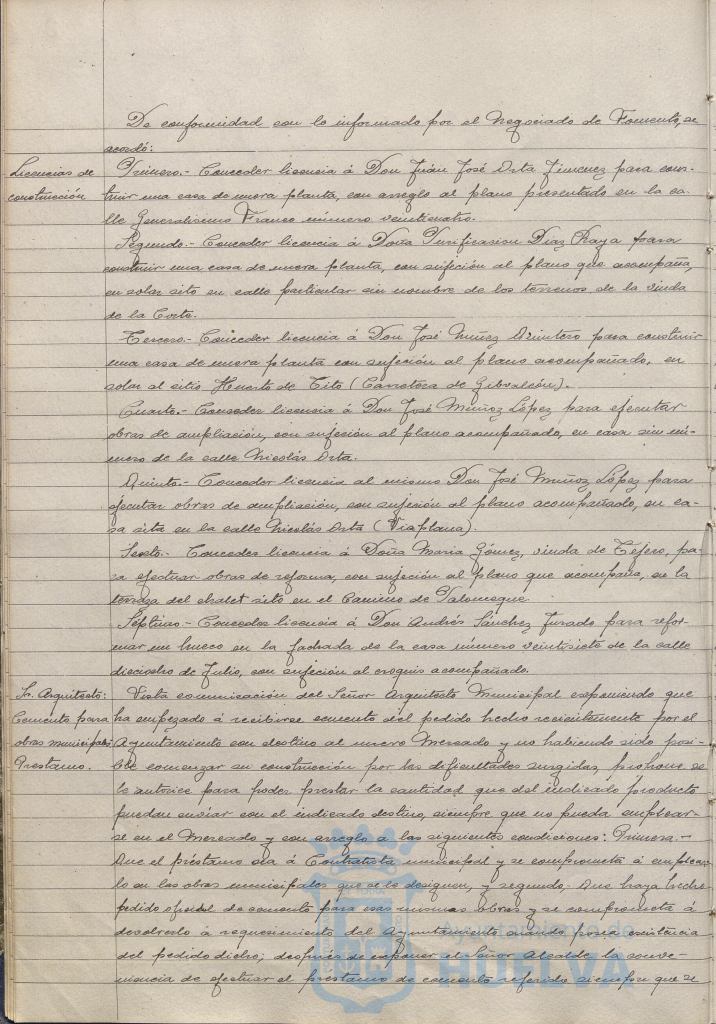 De conformidad con lo informado por el Negociado de Fomento, se
acordó:
Licencias de
construcción
Primero.- Conceder licencia á Don Juán José Orta Jimenez para cons-
truir una casa de nueva planta, con arreglo al plano presentado en la ca-
lle Generalísimo Franco número veinticuatro.
Segundo.- Conceder licencia á Doña Purificasion Díaz Raya para
construir una casa de nueva planta, con sujeción al plano que acompaña,
en solar sito en calle particular sin nombre de los terrenos de la viuda
de la Corte.
Tercero.- Conceder licencia á Don José Núñez Quintero para construir
una casa de nueva planta con sujeción al plano acompañado, en
solar al sitio Huerto de Tito (Carretera de Gibraleón).
Cuarto.- Conceder licencia á Don José Muñoz López para ejecutar
obras de ampliación, con sujeción al plano acompañado, en casa sin nú-
mero de la calle Nicolás Orta.
Quinto.- Conceder licencia al mismo Don José Muñoz López para
ejecutar obras de ampliación, con sujeción al plano acompañado, en ca-
sa sita en la calle Nicolás Orta (Viaplana).
Sexto.- Conceder licencia á Doña María Gómez, viuda de Tejero, pa-
ra efectuar obras de reforma, con sujeción al plano que acompaña, en la
terraza del chalet sito en el Camino de Palomeque.
Séptimo.- Conceder licencia á Don Andrés Sánchez Jurado para refor-
mar un hueco en la fachada de la casa número veintisiete de la calle
dieciocho de Julio, con sujeción al croquis acompañado.
Sr. Arquitecto:
Cemento para
obras municipales
Prestamo.
Vista comunicación del Señor Arquitecto Municipal exponiendo que
ha empezado á recibirse cemento del pedido hecho recientemente por el
Ayuntamiento con destino al nuevo Mercado y no habiendo sido posi-
ble comenzar su construcción por las dificultades surgidas, propone se
le autorice para poder prestar la cantidad que del indicado producto
puedan enviar con el indicado destino, siempre que no pueda emplear-
se en el Mercado y con arreglo a las siguientes condiciones: Primera.-
Que el préstamo sea á Contratista municipal y se comprometa á emplear-
lo en las obras municipales que se le designen, y segundo: Que haya hecho
pedido oficial de cemento para esas mismas obras y se comprometa á
devolverlo á requerimiento del Ayuntamiento cuando posea existencia
del pedido dicho; después de exponer el Señor Alcalde la conve-
niencia de efectuar el préstamo de cemento referido siempre que se
Ayuntamiento de
HUELVA